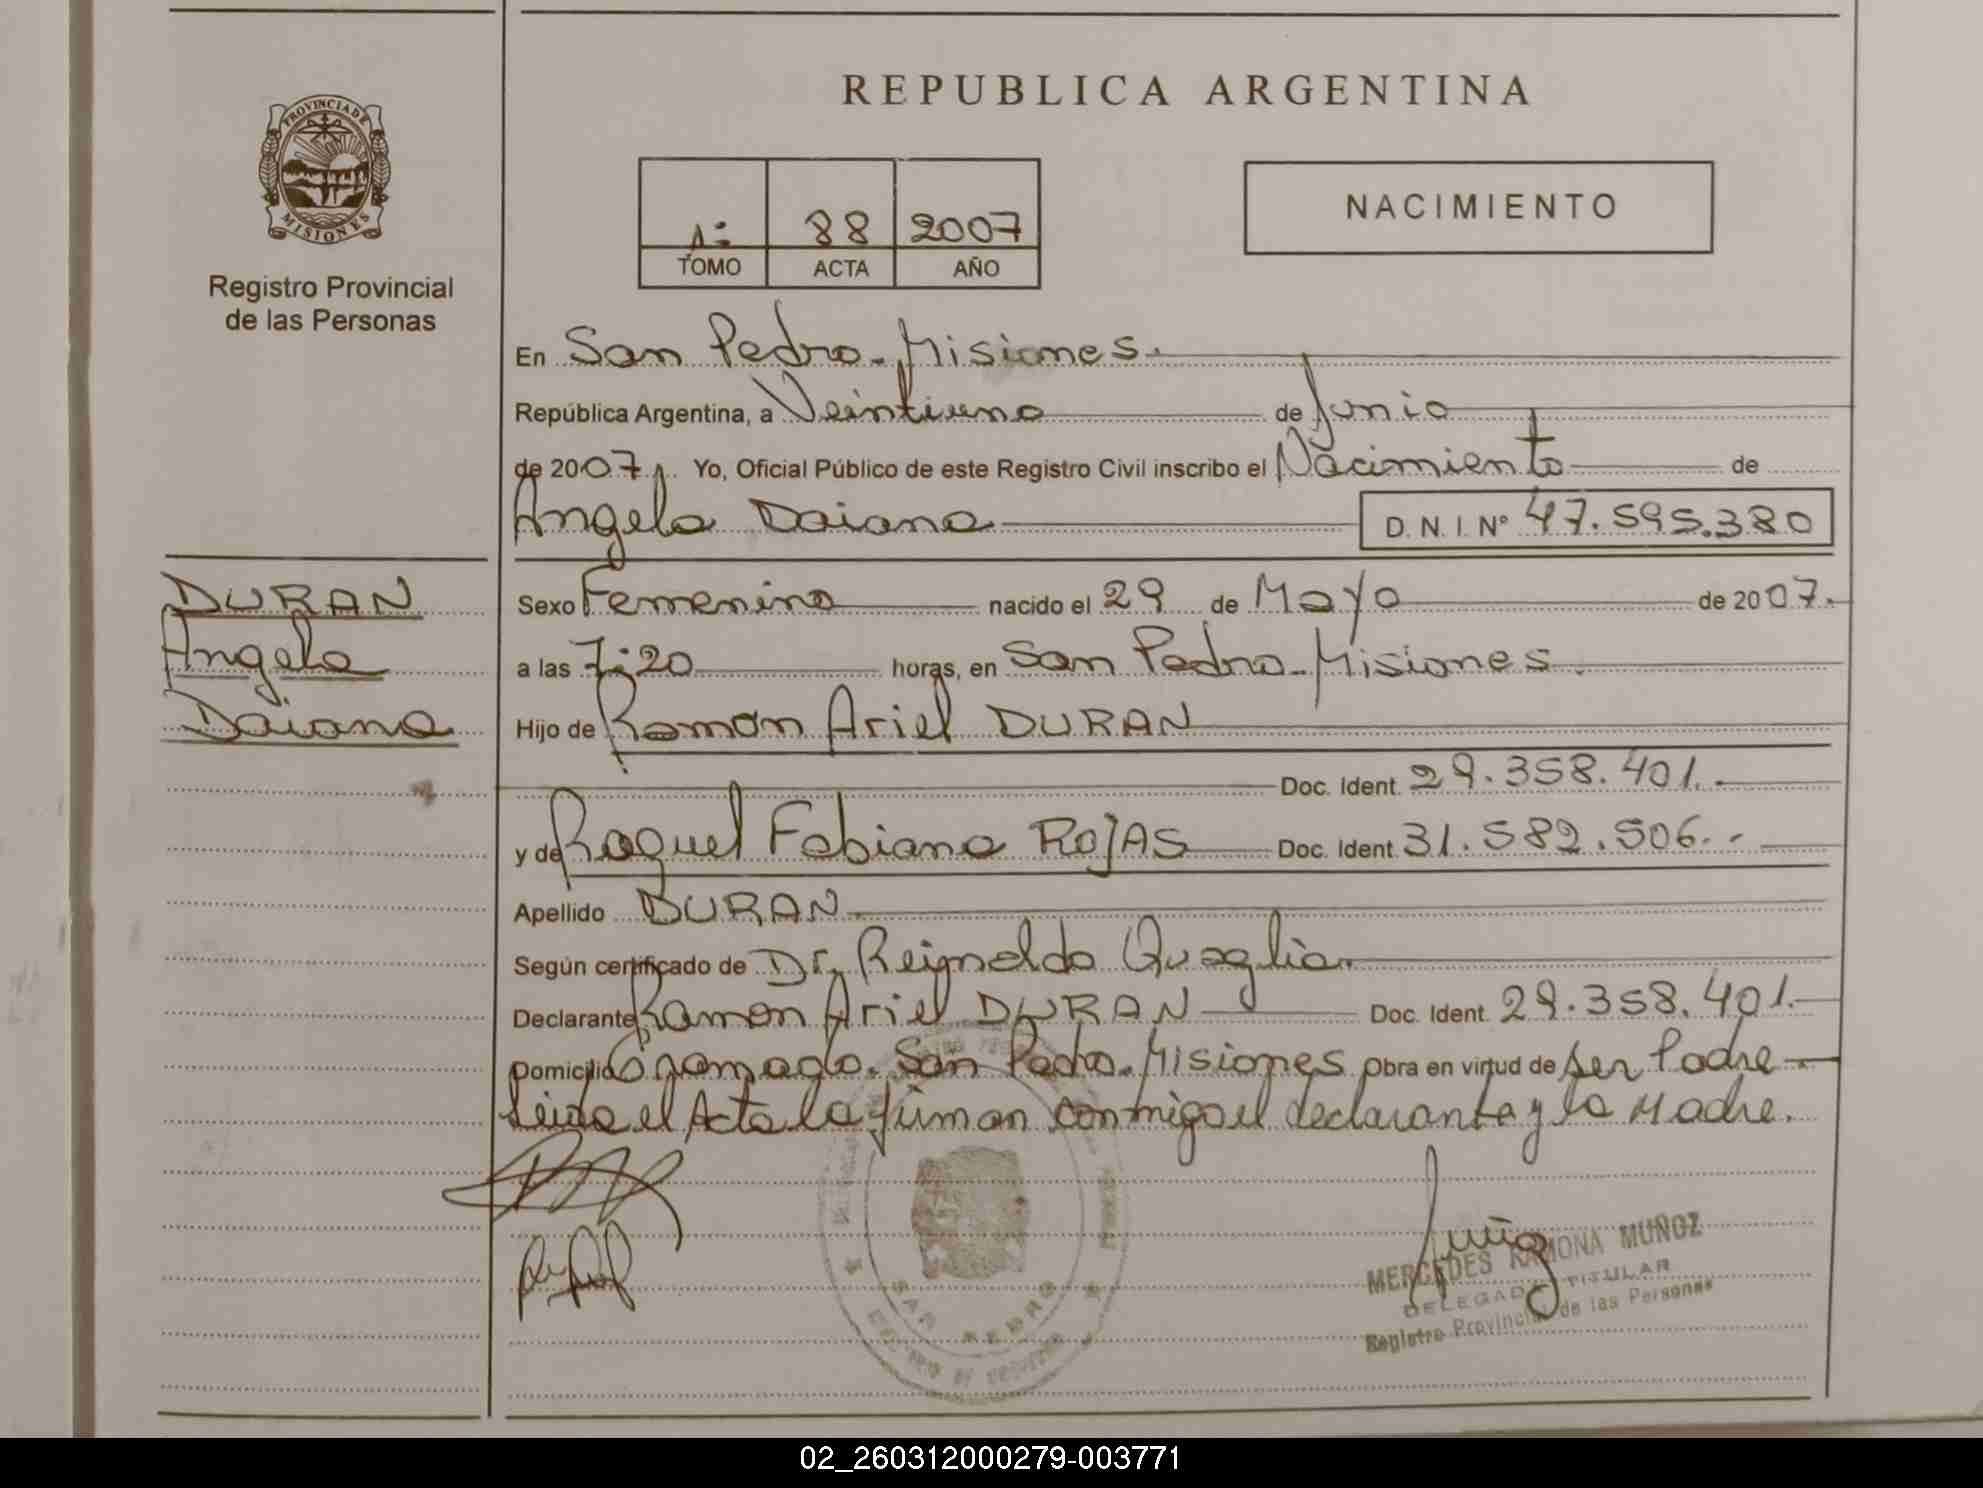 REPUBLICA ARGENTINA
PROVINCIA DE MISIONES
Registro Provincial
de las Personas
1: 88 2007
TOMO ACTA AÑO
NACIMIENTO
En San Pedro - Misiones.
República Argentina, a Veintiuno de Junio
de 2007, Yo, Oficial Público de este Registro Civil inscribo el Nacimiento de
Angela Daiana D. N. I. Nº 47.595.380
DURAN
Angela
Daiana
Sexo Femenino nacido el 29 de Mayo de 2007.
a las 7:20 horas, en San Pedro - Misiones.
Hijo de Ramon Ariel DURAN
Doc. Ident. 29.358.401.-
y de Raquel Fabiana ROJAS Doc. Ident. 31.582.506.-
Apellido DURAN
Según certificado de Dr. Reinaldo Quaglia.
Declarante Ramon Ariel DURAN Doc. Ident. 29.358.401.
Domicilio Gramado. San Pedro. Misiones Obra en virtud de ser Padre
Leida el Acta la firman conmigo el declarante y la Madre.
SAN PEDRO
MERCEDES RAMONA MUÑOZ
DELEGADA TITULAR
Registro Provincial de las Personas
02_260312000279-003771